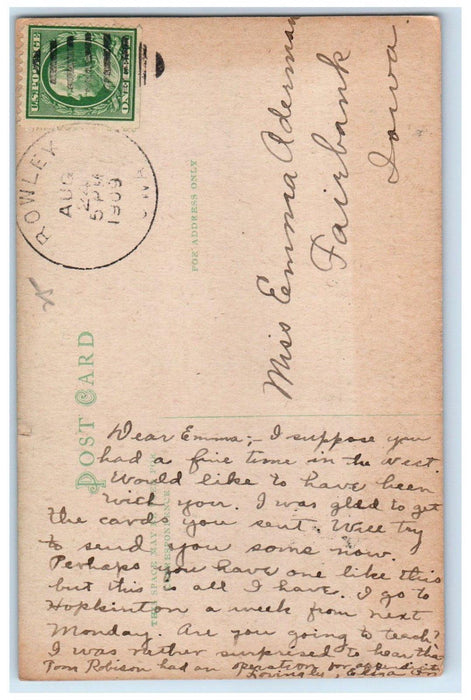 U.S. POSTAGE
ONE CENT
ROWLEY
AUG
24
5 PM
1909
IOWA
FOR ADDRESS ONLY
Miss Emma Aderman
Fairbank
Iowa.
POST CARD
THE SPACE MAY
CORRESPONDENCE
Dear Emma;- I suppose you
had a fine time in the west.
Would like to have been
with you. I was glad to get
the cards you sent. Will try
to send you some now.
Perhaps you have one like this
but this is all I have. I go to
Hopkinton a week from next
Monday. Are you going to teach?
I was rather surprised to hear this
Tom Robison had an operation for appendicitis
Lovingly, Eliza